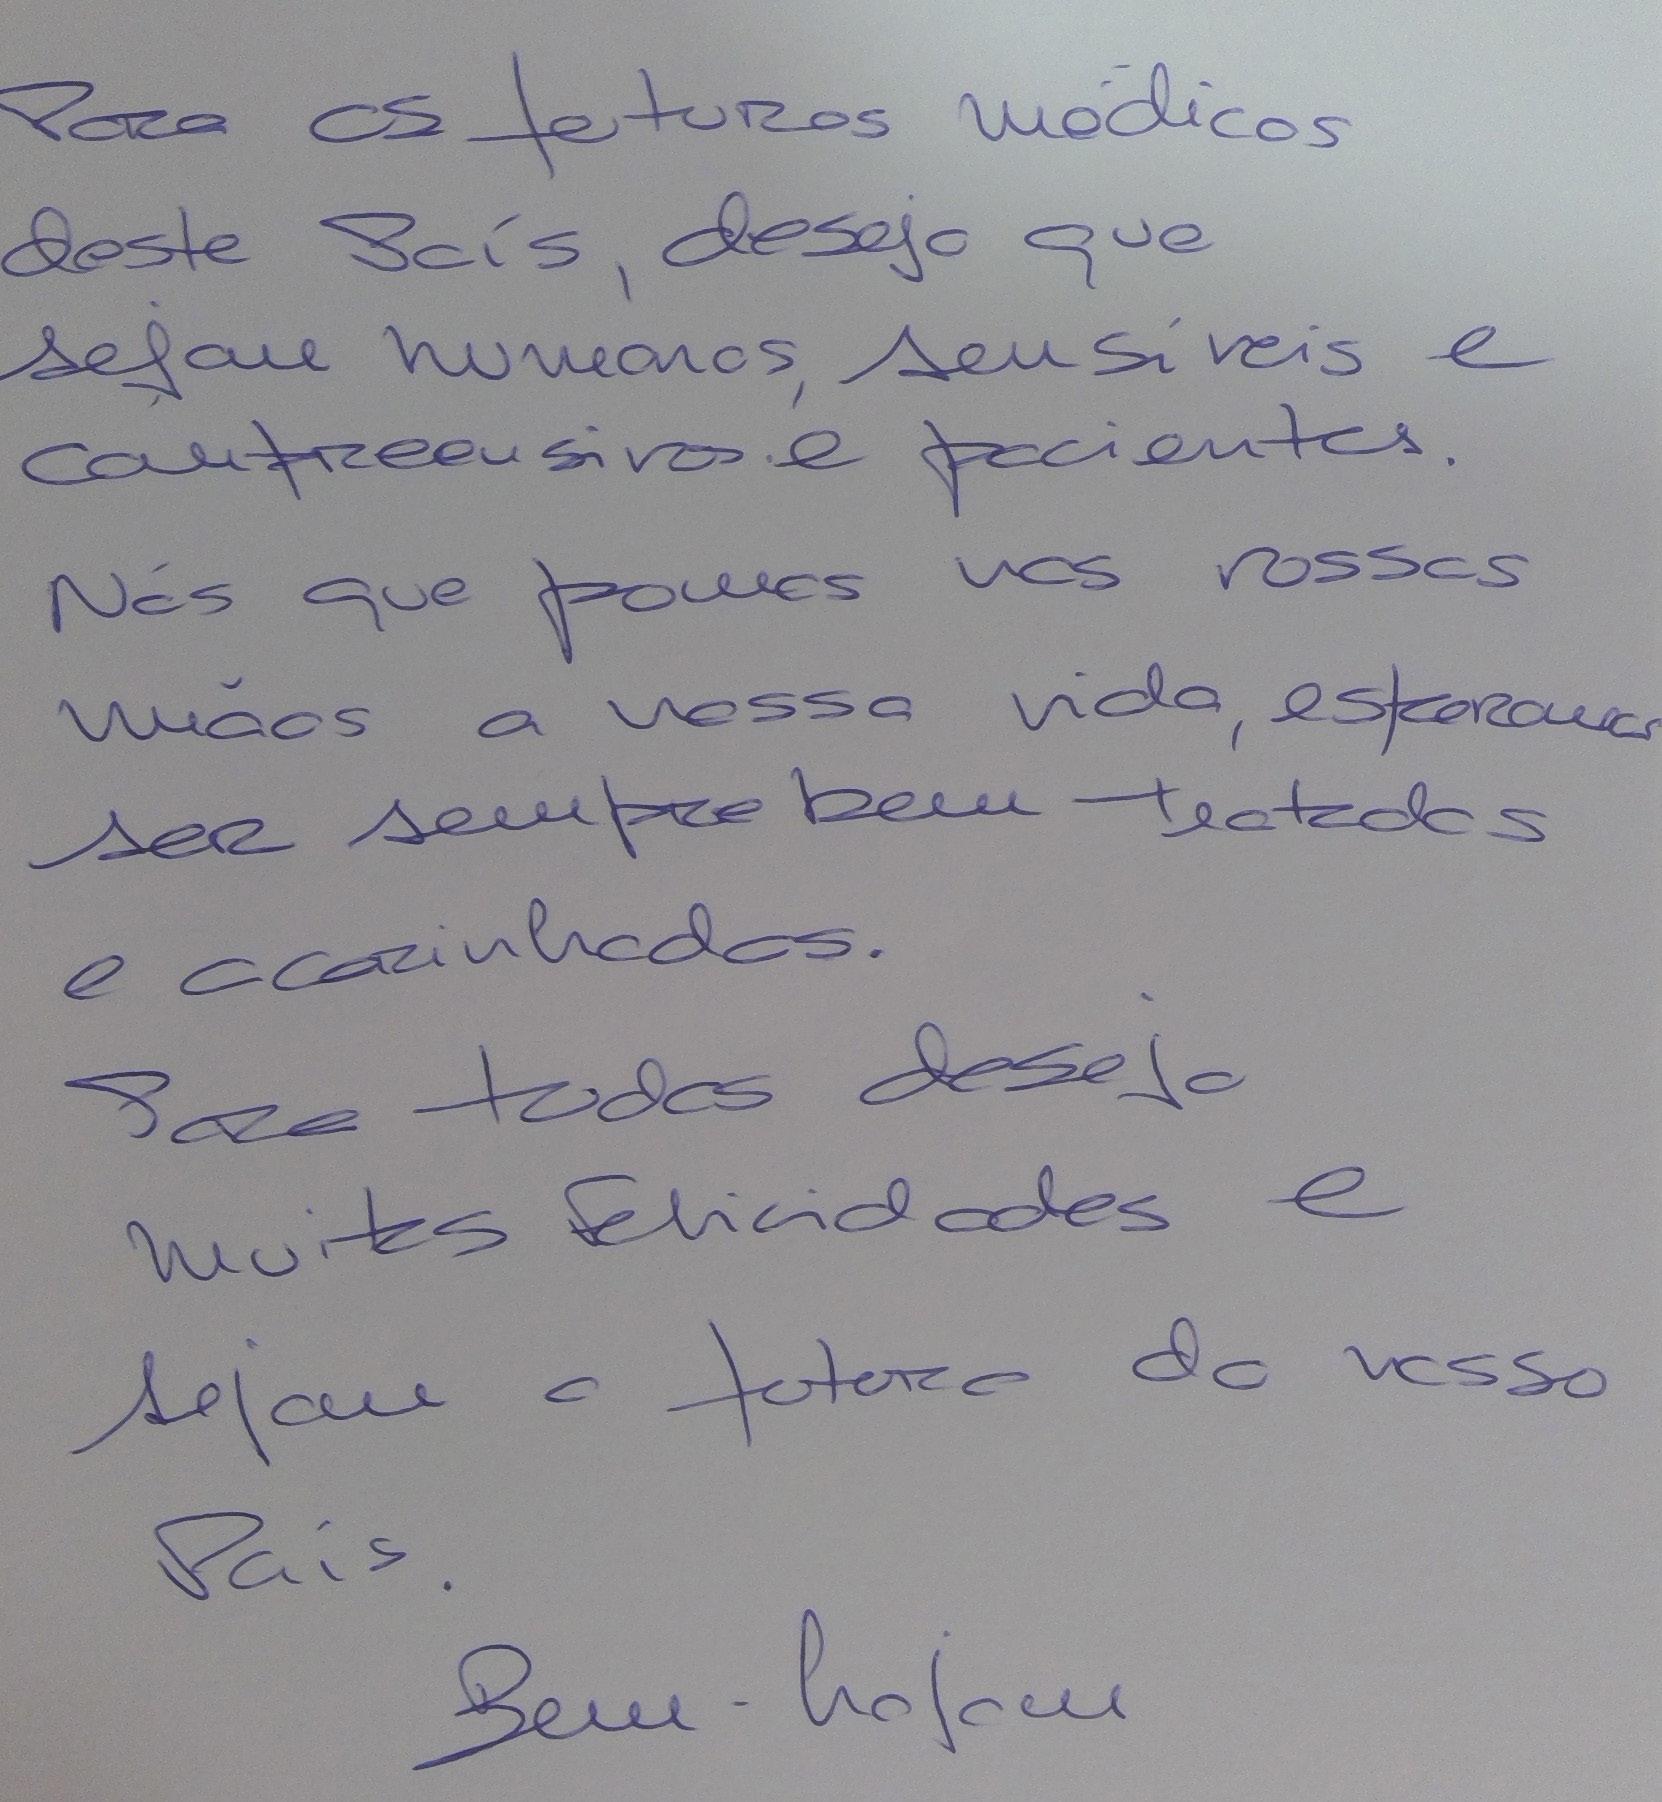 Para os futuros médicos
deste País, desejo que
sejam humanos, sensíveis e
compreensivos e pacientes.
Nós que pomos nas vossas
mãos a nossa vida, esperamos
ser sempre bem tratados
e acarinhados.
Para todos desejo
muitas Felicidades e
sejam o futuro do vosso
País.
Bem-hajam